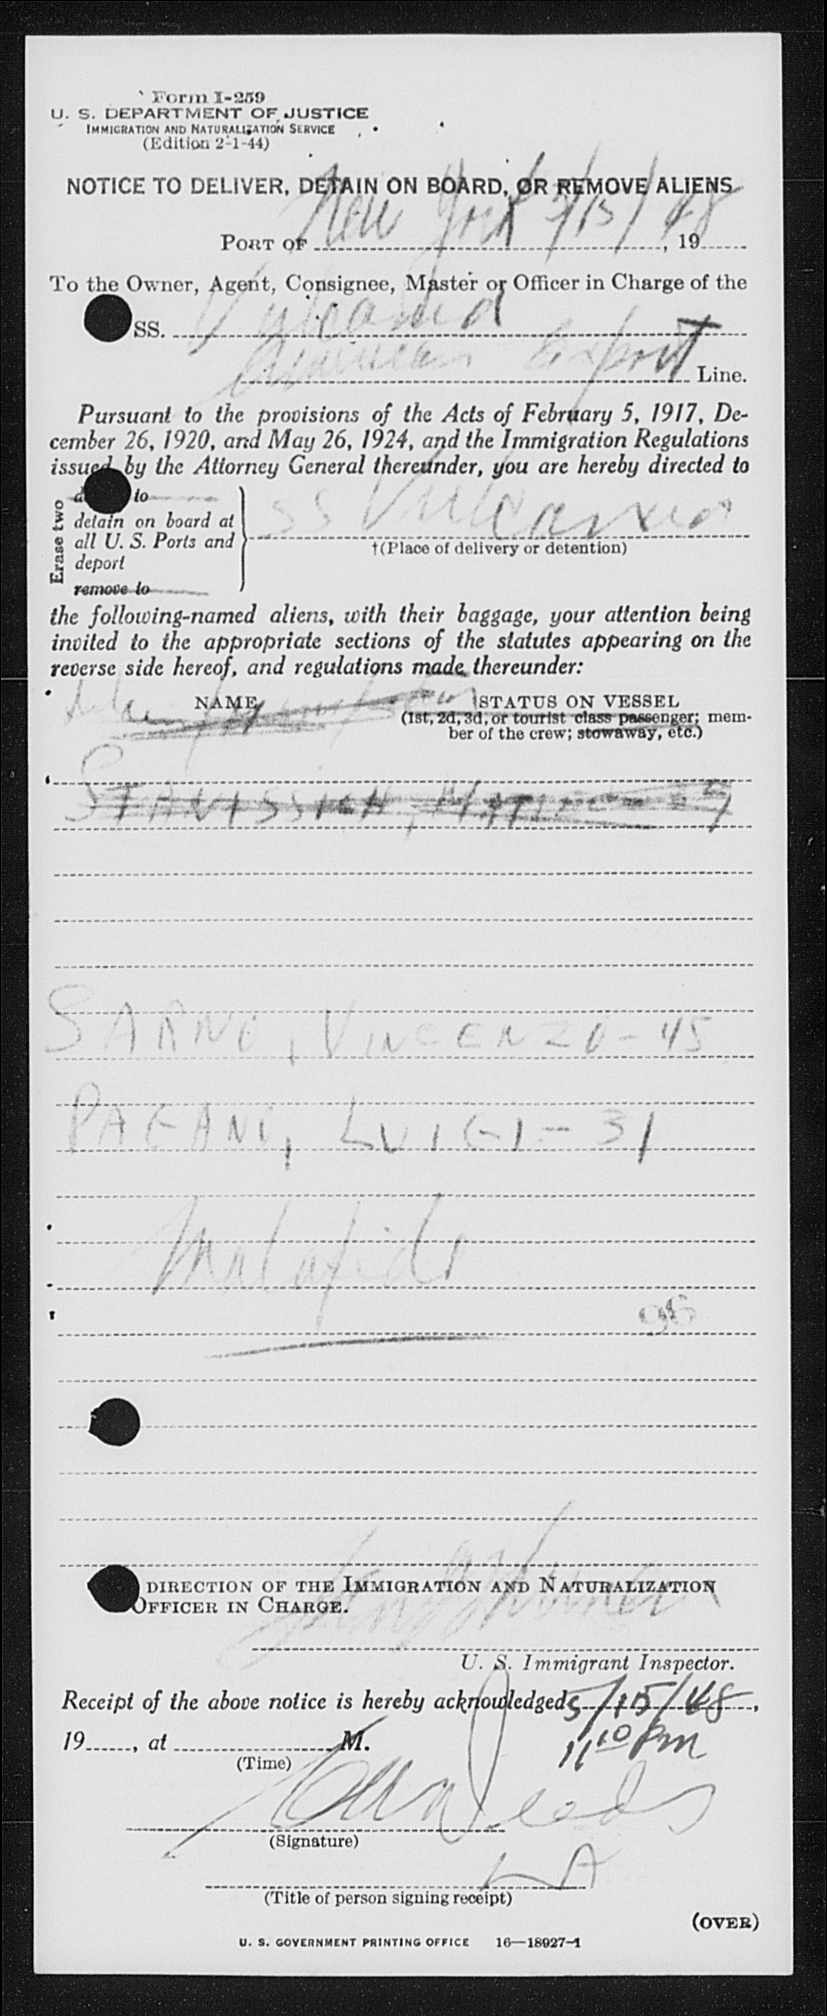 Form I-259
U. S. DEPARTMENT OF JUSTICE
IMMIGRATION AND NATURALIZATION SERVICE
(Edition 2-1-44)
NOTICE TO DELIVER, DETAIN ON BOARD, OR REMOVE ALIENS
PORT OF New York 5/15/48, 19
To the Owner, Agent, Consignee, Master or Officer in Charge of the
SS. Vulcania
American Export Line.
Pursuant to the provisions of the Acts of February 5, 1917, De-
cember 26, 1920, and May 26, 1924, and the Immigration Regulations
issued by the Attorney General thereunder, you are hereby directed to
Erase two
to
detain on board at
all U. S. Ports and
deport
remove to
SS Vulcania
†(Place of delivery or detention)
the following-named aliens, with their baggage, your attention being
invited to the appropriate sections of the statutes appearing on the
reverse side hereof, and regulations made thereunder:
NAME STATUS ON VESSEL
(1st, 2d, 3d, or tourist class passenger; mem-
ber of the crew; stowaway, etc.)
SARNO, VINCENZO - 45
PAGANO, LUIGI - 31
Malafide
DIRECTION OF THE IMMIGRATION AND NATURALIZATION
OFFICER IN CHARGE.
U. S. Immigrant Inspector.
Receipt of the above notice is hereby acknowledged 5/15/48,
19, at M. 11 10 PM
(Time)
(Signature)
(Title of person signing receipt)
(OVER)
U. S. GOVERNMENT PRINTING OFFICE 16—18927-1